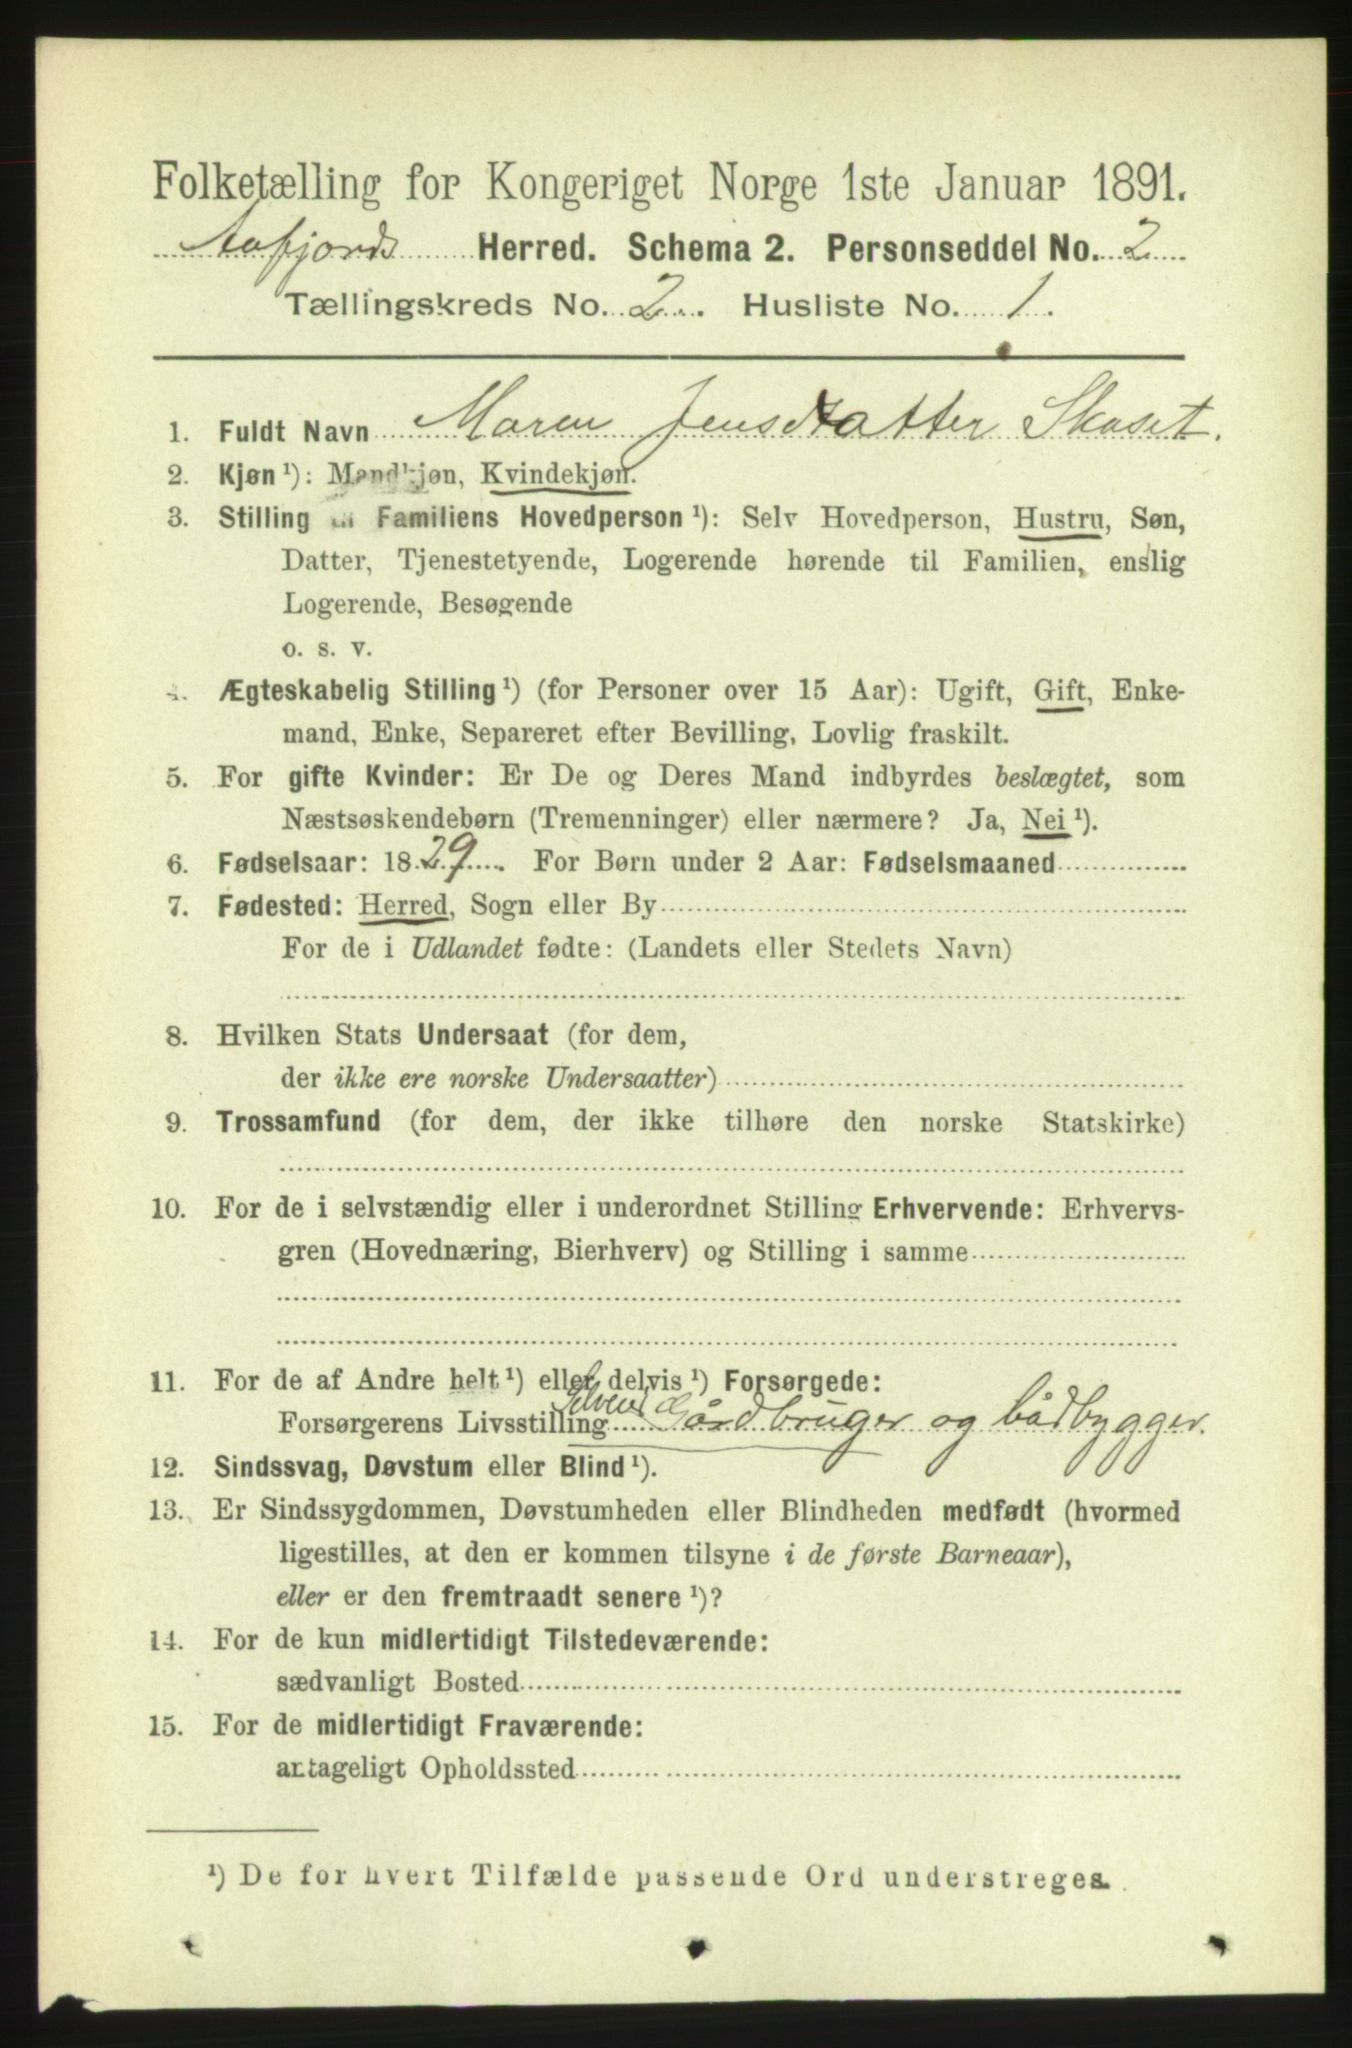 Folketælling for Kongeriget Norge 1ste Januar 1891.
Aafjords Herred. Schema 2. Personseddel No. 2
Tællingskreds No. 2. Husliste No. 1.
1. Fuldt Navn Maren Jensdatter Skaset.
2. Kjøn ¹): Mandkjøn, Kvindekjøn.
3. Stilling til Familiens Hovedperson ¹): Selv Hovedperson, Hustru, Søn,
Datter, Tjenestetyende, Logerende hørende til Familien, enslig
Logerende, Besøgende
o. s. v.
4. Ægteskabelig Stilling ¹) (for Personer over 15 Aar): Ugift, Gift, Enke-
mand, Enke, Separeret efter Bevilling, Lovlig fraskilt.
5. For gifte Kvinder: Er De og Deres Mand indbyrdes beslægtet, som
Næstsøskendebørn (Tremenninger) eller nærmere? Ja, Nei ¹).
6. Fødselsaar: 1829. For Børn under 2 Aar: Fødselsmaaned
7. Fødested: Herred, Sogn eller By
For de i Udlandet fødte: (Landets eller Stedets Navn)
8. Hvilken Stats Undersaat (for dem,
der ikke ere norske Undersaatter)
9. Trossamfund (for dem, der ikke tilhøre den norske Statskirke)
10. For de i selvstændig eller i underordnet Stilling Erhvervende: Erhvervs-
gren (Hovednæring, Bierhverv) og Stilling i samme
11. For de af Andre helt ¹) eller delvis ¹) Forsørgede:
Forsørgerens Livsstilling Selveier Gårdbruger og bådbygger.
12. Sindssvag, Døvstum eller Blind ¹).
13. Er Sindssygdommen, Døvstumheden eller Blindheden medfødt (hvormed
ligestilles, at den er kommen tilsyne i de første Barneaar),
eller er den fremtraadt senere ¹)?
14. For de kun midlertidigt Tilstedeværende:
sædvanligt Bosted
15. For de midlertidigt Fraværende:
antageligt Opholdssted
¹) De for hvert Tilfælde passende Ord understreges.